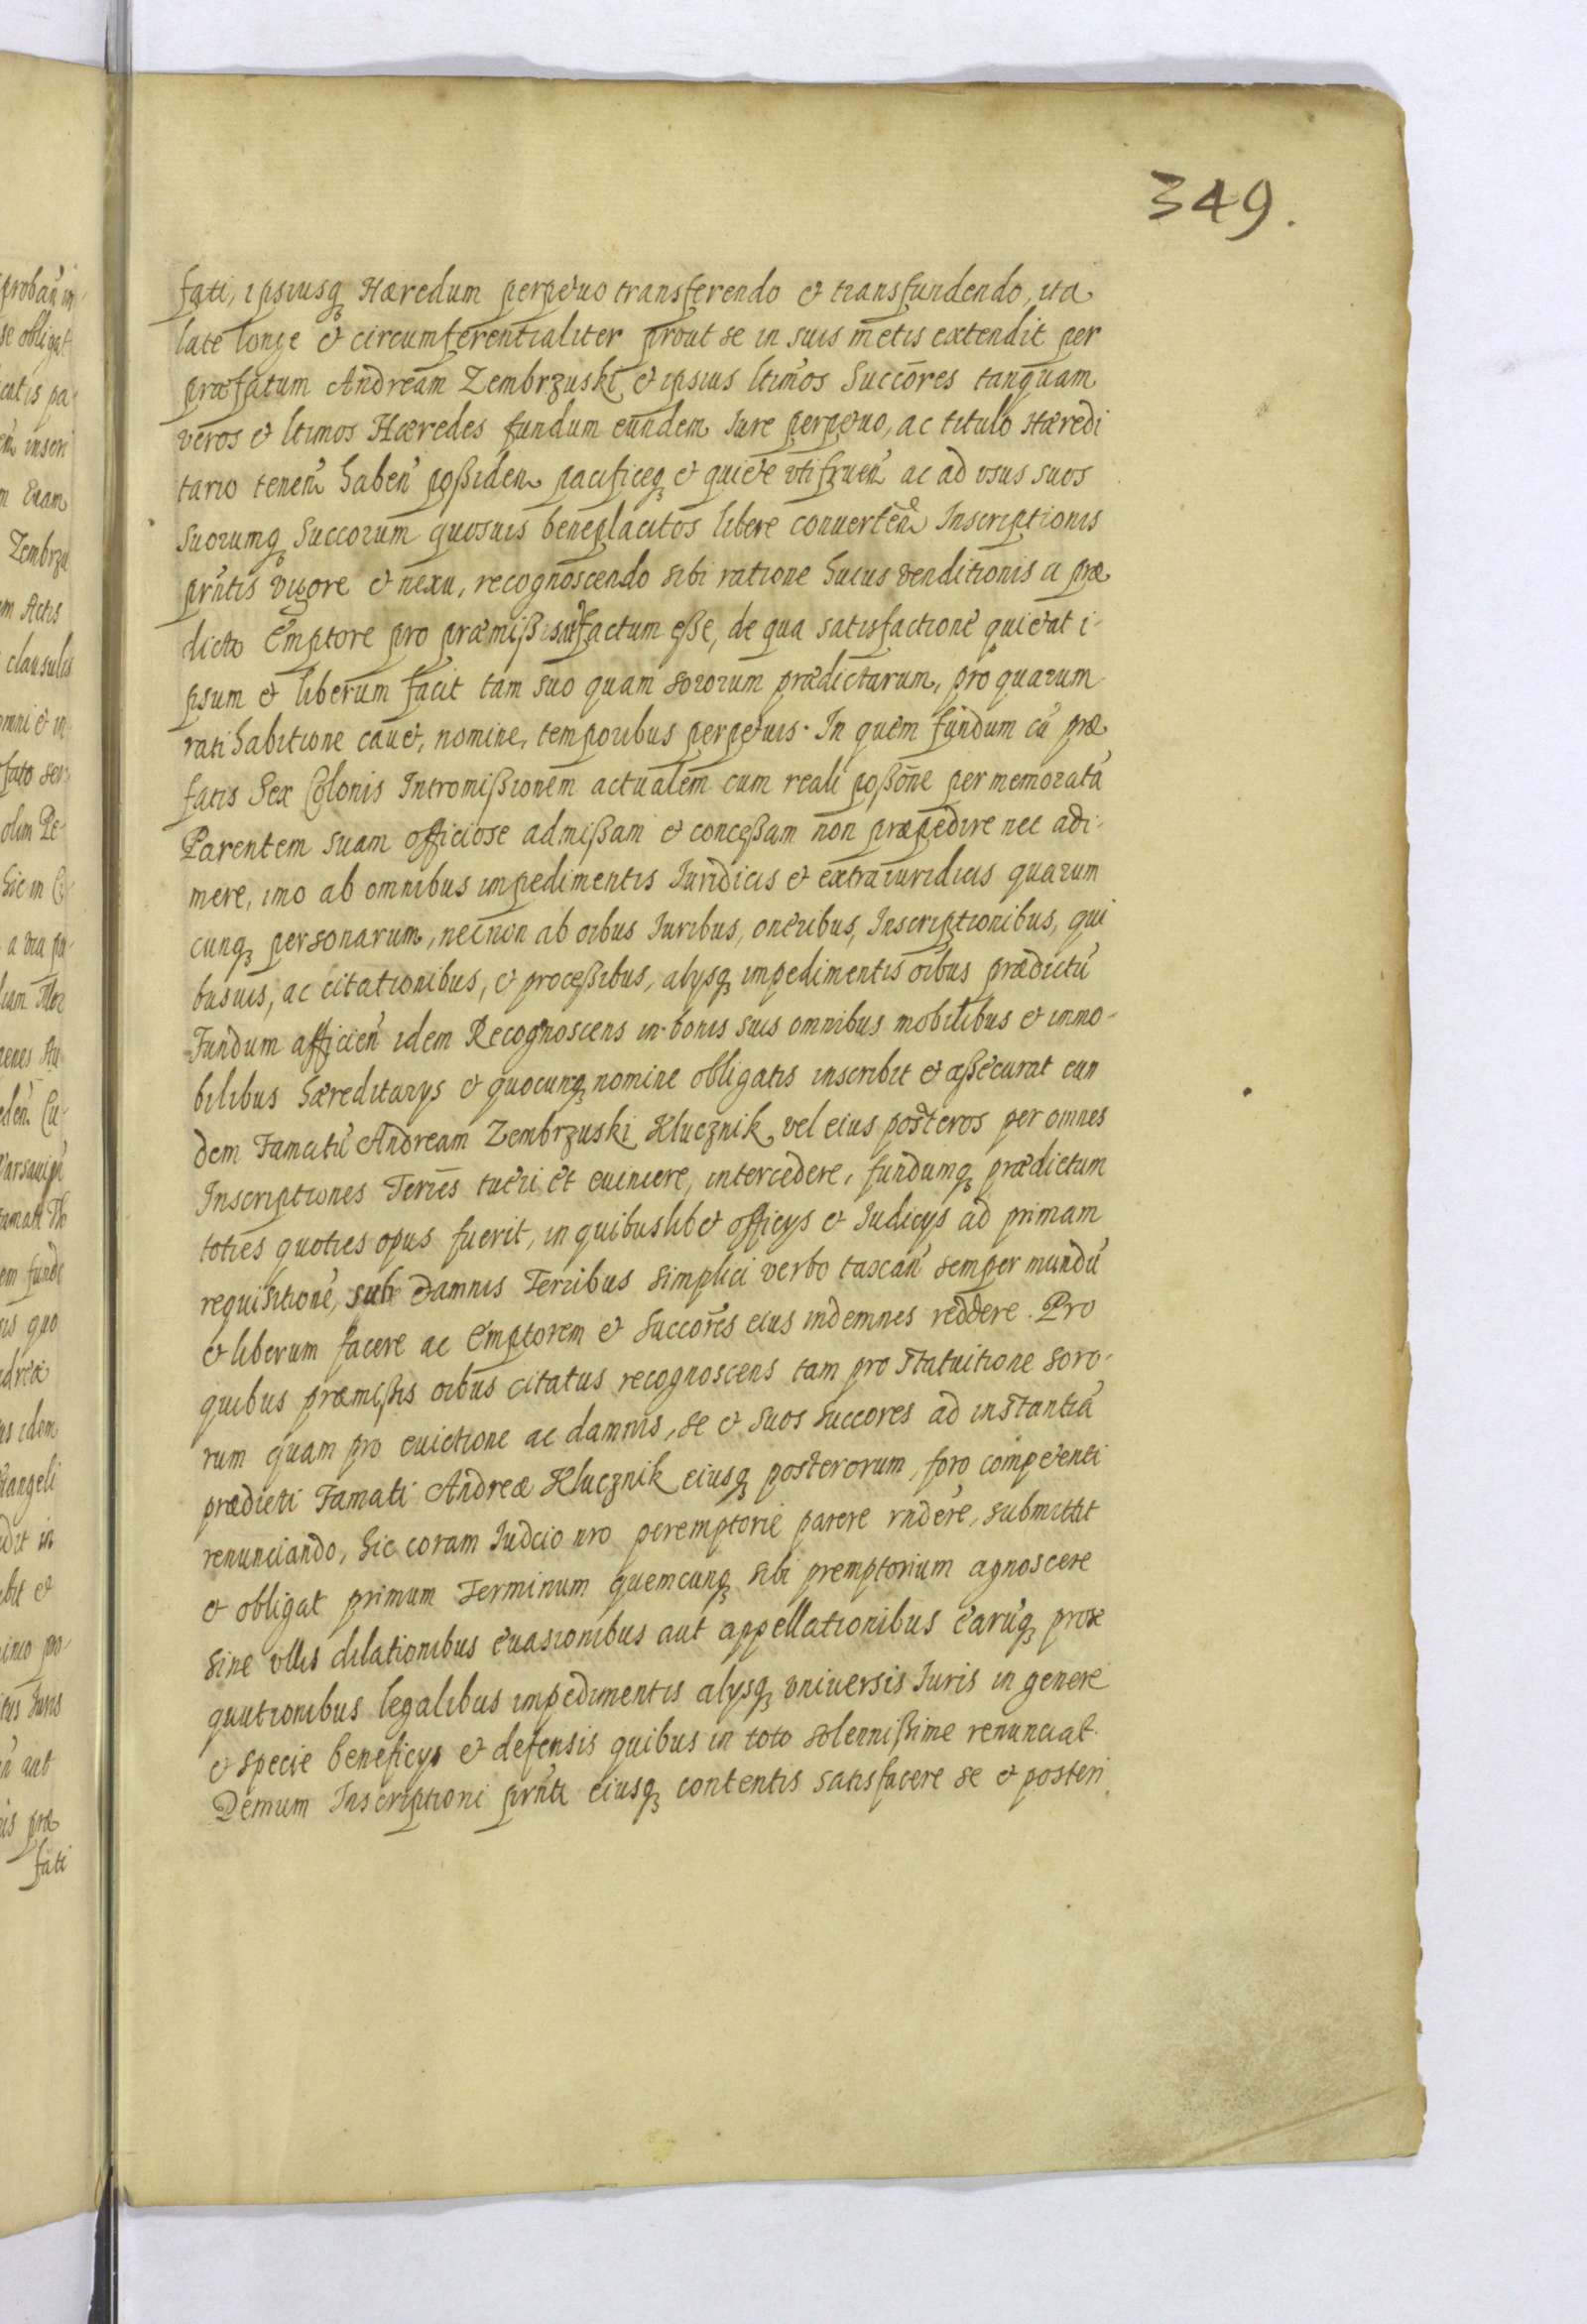 349.
fati, ipsiusq₃ Hæredum perpetuo transferendo et transfundendo, ita
late longe et circumferentialiter prout se in suis metis extendit per
præfatum Andream Zembrzuski et ipsius ltimos Succōres tanquam
veros et ltimos Hæredes fundum eundem Iure perpetuo, ac titulo Hæredi
tario tenen̄ haben̄ poßiden pacificeq₃ et quiete vtifruen̄ ac ad vsus suos
Suorumq₃ Succorum quosuis beneplacitos libere conuerten̄ Inscriptionis
prn̄tis vigore et nexu, recognoscendo sibi ratione huius venditionis a præ
dicto Emptore pro præmiß satisfactum eße, de qua satisfactione quietat i-
psum et liberum facit tam suo quam sororum prædictarum, pro quarum
ratihabitione cauet, nomine, temporibus perpetuis. In quem fundum cū præ
fatis Sex Colonis Intromißionem actualem cum reali poßōne per memoratā
Parentem suam officiose admißam et conceßam non præpedire nec adi-
mere, imo ab omnibus impedimentis Iuridicis et extraiuridicis quarum
cunq₃ personarum, necnon ab oibus Iuribus, oneribus, Inscriptionibus, qui
busuis, ac citationibus, et proceßibus, alysq₃ impedimentis oibus prædictū
Fundum afficien̄ idem Recognoscens in bonis suis omnibus mobilibus et immo-
bilibus hæreditarys et quocunq₃ nomine obligatis inscribit et aßecurat eun
dem Famatū Andream Zembrzuski Klucznik vel eius posteros per omnes
Inscriptiones Terrēs tueri et euincere, intercedere, fundumq₃ prædictum
toties quoties opus fuerit, in quibuslibet officys et Iudicys ad primam
requisitionē, sub damnis Terribus simplici verbo taxan̄ semper mundū
et liberum facere ac Emptorem et Succorēs eius indemnes reddere. Pro
quibus præmißis oibus citatus recognoscens tam pro statuitione soro-
rum quam pro euictione ac damnis, se et suos succores ad instantiā
prædicti Famati Andreæ Klucznik eiusq₃ posterorum, foro competenti
renunciando, hic coram Iudcio nro peremptorie parere rndere, submittit
et obligat primum Terminum quemcunq₃ sibi premptorium agnoscere
sine vllis dilationibus euasionibus aut appellationibus earūq₃ prose
quutionibus legalibus impedimentis alysq₃ vniuersis Iuris in genere
et specie beneficys et defensis quibus in toto solennißime renunciat.
Demum Inscriptioni prn̄ti eiusq₃ contentis satisfacere se et posteri